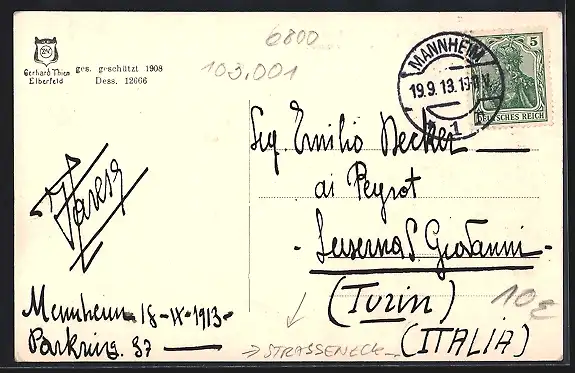 6800
103.001
Gerhard Thien
Elberfeld
ges. geschützt 1908
Dess. 12666
MANNHEIM
19.9.13.
1
5
DEUTSCHES REICH
Sig. Emilio Decker
di Peyrot
- Luserna S. Giovanni -
(Turin)
(ITALIA)
Mannheim 18-IX-1913-
Parkring. 37
→ STRASSENECK
10€